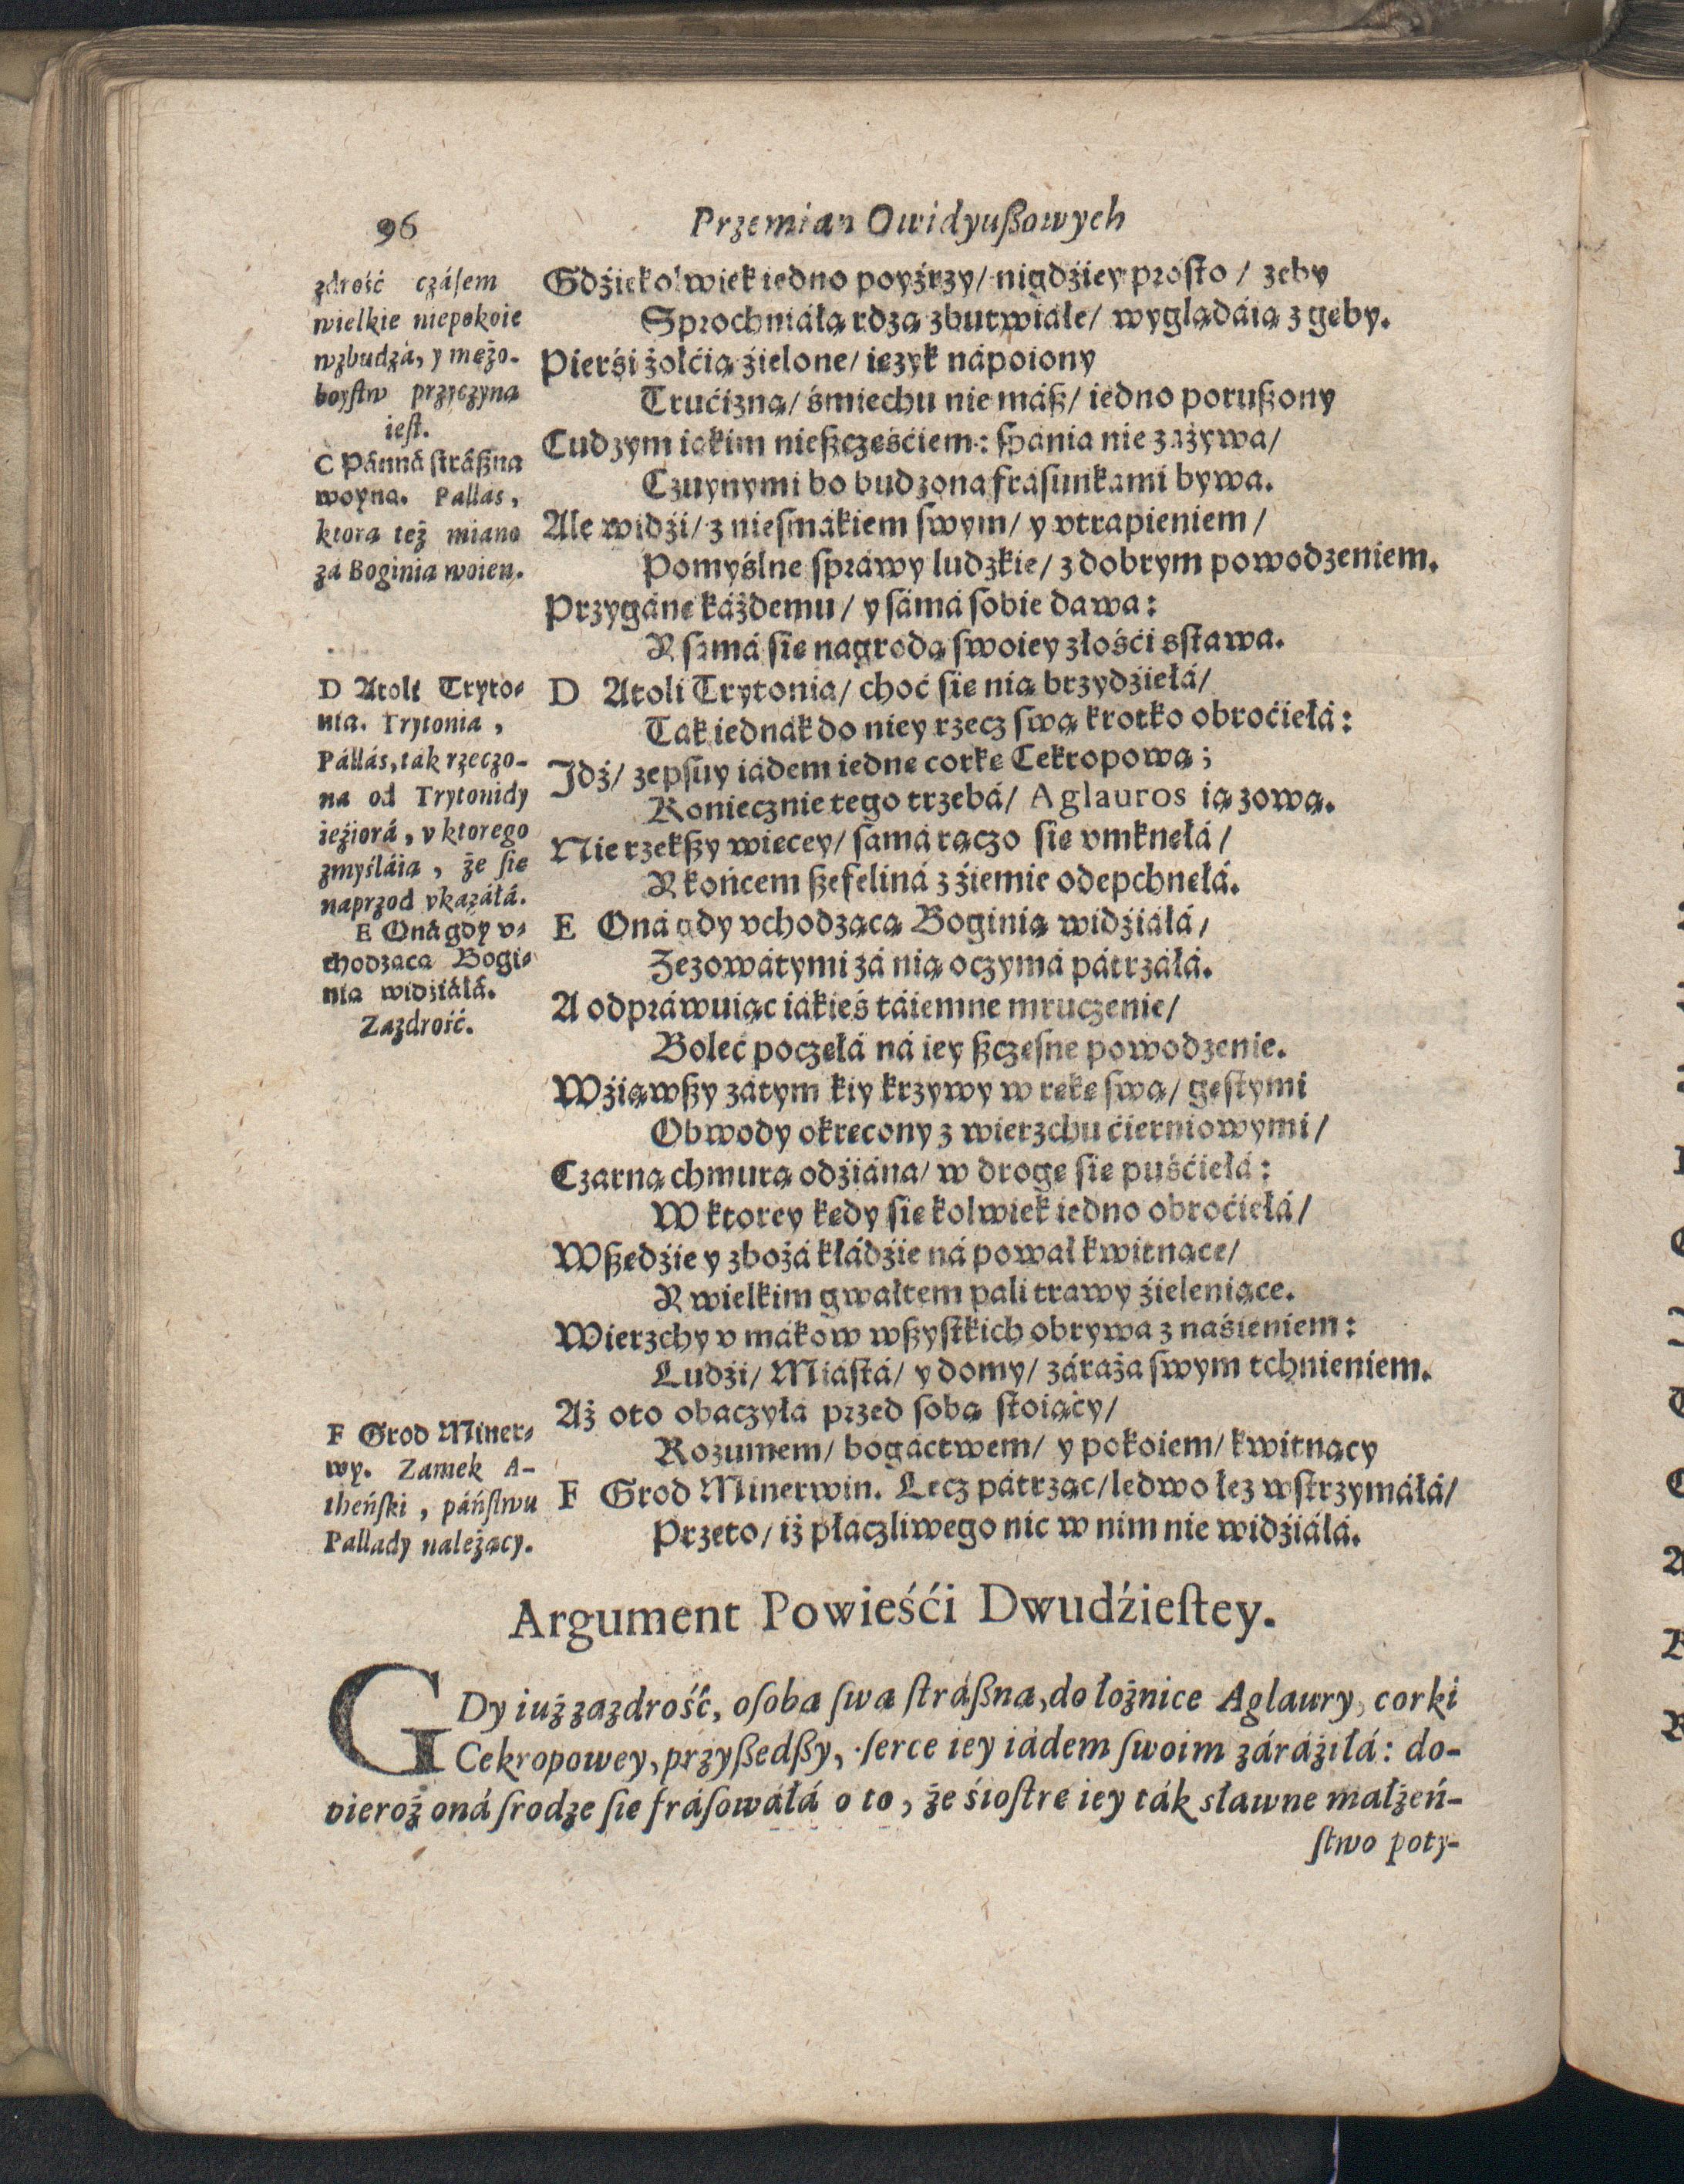 96
Przemian Owidyußowych
zdrość czáſem
wielkie niepokoie
wzbudzá, y mężo-
boyſtw przyczyną
ieſt.
C Pánná ſtráßna
woyną. Pallás,
ktora też miano
zá Boginia woien.
D Atoli Tryto-
nia. Trytonia,
Pállás, ták rzeczo-
na od Trytonidy
ieźiorá, v ktorego
zmyśláią, że ſie
naprzod vkazáłá.
E Oná gdy v-
chodzaca Bogi-
nia widźiáłá.
Zazdrość.
F Grod Miner-
wy. Zamek A-
theńſki, páńſtwu
Pallady należący.
Gdźiekolwiek iedno poyźrzy/ nigdźiey proſto / zęby
Sprochniáłą rdzą zbutwiáłe/ wyglądáią z gęby.
Pierśi żołćią źielone/ ięzyk nápoiony
Trućizną/ śmiechu nie máß/ iedno porußony
Cudzym iakim nießczęśćiem: ſpánia nie záżywa/
Czuynymi bo budzona fráſunkámi bywa.
Ale widźi/ z nieſmákiem ſwym/ y vtrapieniem/
Pomyślne ſpráwy ludzkie/ z dobrym powodzeniem.
Przygánę káżdemu/ y ſámá ſobie dawa:
Y ſámá ſie nagrodą ſwoiey złośći sſtawa.
D Atoli Trytonia/ choć ſie nią brzydźiełá/
Ták iednák do niey rzecz ſwą krotko obroćiełá:
Jdź/ zepſuy iádem iednę corkę Cekropową;
Koniecznie tego trzebá/ Aglauros ią zową.
Nie rzekßy więcey/ ſámá rączo ſie vmknęłá/
Y końcem ßefeliná z źiemie odepchnęłá.
E Oná gdy vchodzącą Boginią widźiáłá/
Zezowátymi zá nią oczymá pátrzáłá.
A odpráwuiąc iákieś táiemne mruczenie/
Boleć poczęłá ná iey ßczęſne powodzenie.
Wźiąwßy zátym kiy krzywy w rękę ſwą/ gęſtymi
Obwody okręcony z wierzchu ćierniowymi/
Czarną chmurą odźiána/ w drogę ſie puśćiełá:
W ktorey kędy ſie kolwiek iedno obroćiełá/
Wßędźie y zbożá kłádźie ná pował kwitnące/
Y wielkim gwałtem pali trawy źieleniące.
Wierzchy v mákow wßyſtkich obrywa z naśieniem:
Ludźi/ Miáſtá/ y domy/ záraża ſwym tchnieniem.
Aż oto obaczyłá przed ſobą ſtoiący/
Rozumem/ bogáctwem/ y pokoiem/ kwitnący
F Grod Minerwin. Lecz pátrząc/ ledwo łez wſtrzymáłá/
Przeto/ iż płáczliwego nic w nim nie widźiáłá.
Argument Powieśći Dwudźieſtey.
GDy iuż zazdrość, oſoba ſwa ſtráßna, do łożnice Aglaury, corki
Cekropowey, przyßedßy, ſerce iey iádem ſwoim záráźiłá: do-
pieroż oná ſrodze ſie fráſowáłá o to, że śioſtrę iey ták sławne małżeń-
ſtwo poty-